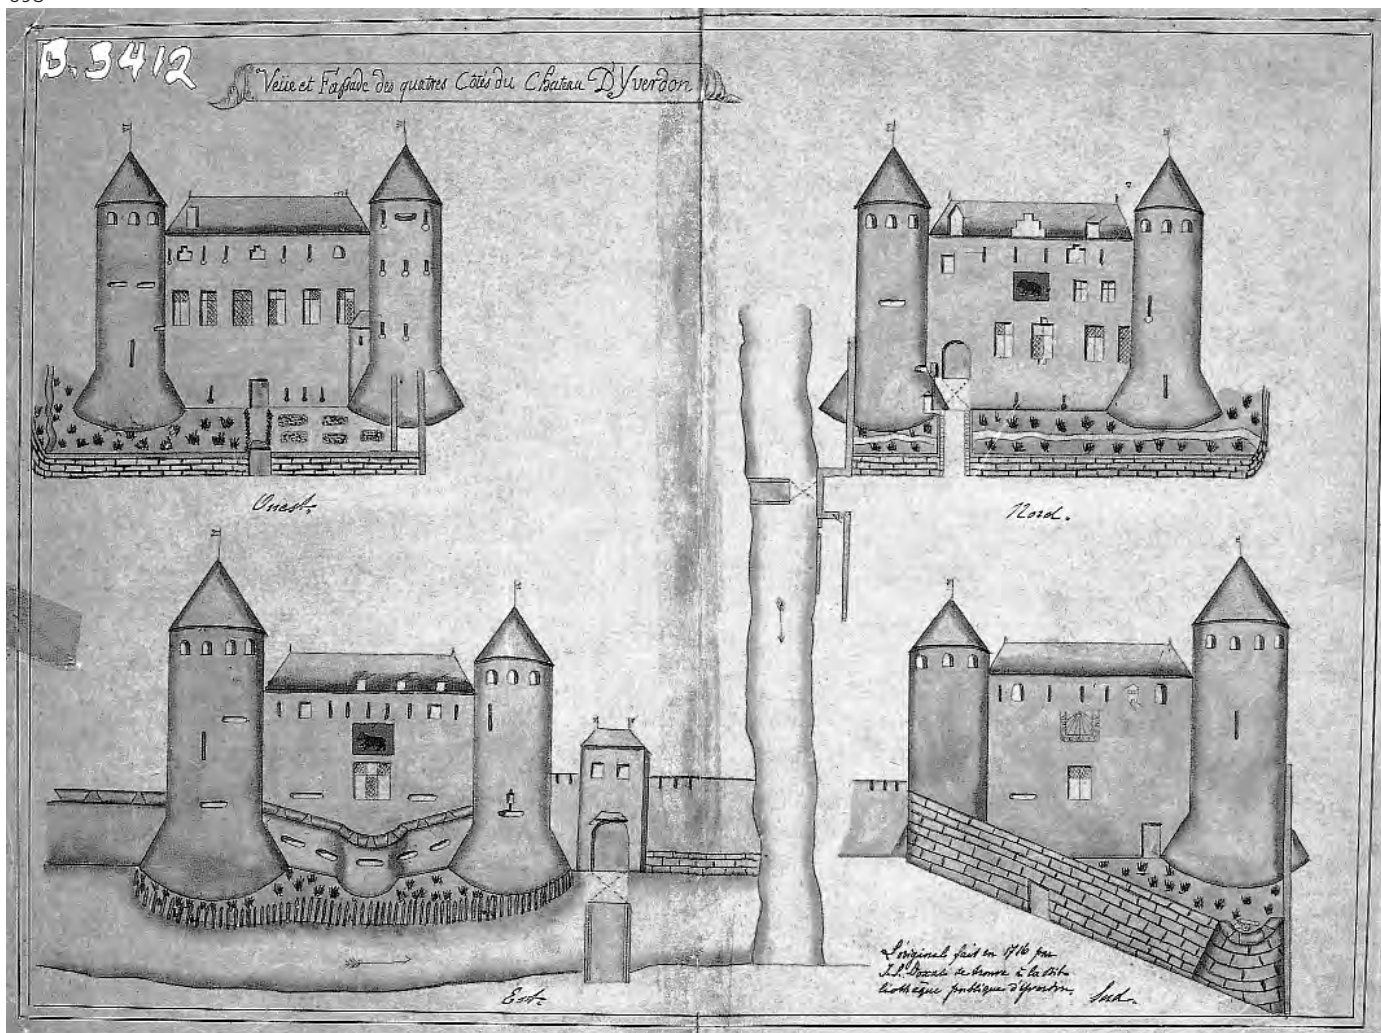 698
B.3412
Veüe et Fassade des quatres Côtés du Chateau D'Yverdon
Ouest.
Nord.
Est.
L'original fait en 1716 par
J.S. se trouve à la bib-
liothèque publique d'Yverdon.
Sud.